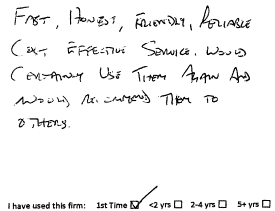 FAST, HONEST, FRIENDLY, RELIABLE
COST EFFECTIVE SERVICE. WOULD
CERTAINLY USE THEM AGAIN AND
WOULD RECOMMEND THEM TO
OTHERS.
I have used this firm: 1st Time ☑ <2 yrs ☐ 2-4 yrs ☐ 5+ yrs ☐